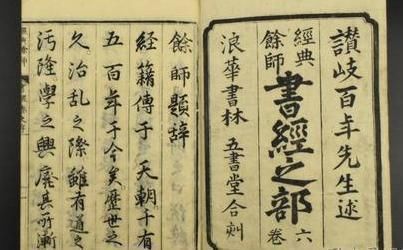 讚岐百年先生述
經典餘師
書經之部
六卷
浪華書林 五書堂合刻
餘師題辞
經籍傳于 天朝十有
五百年于今矣歷世之
久治乱之際雖有道之
汚隆學之興廃其所漸